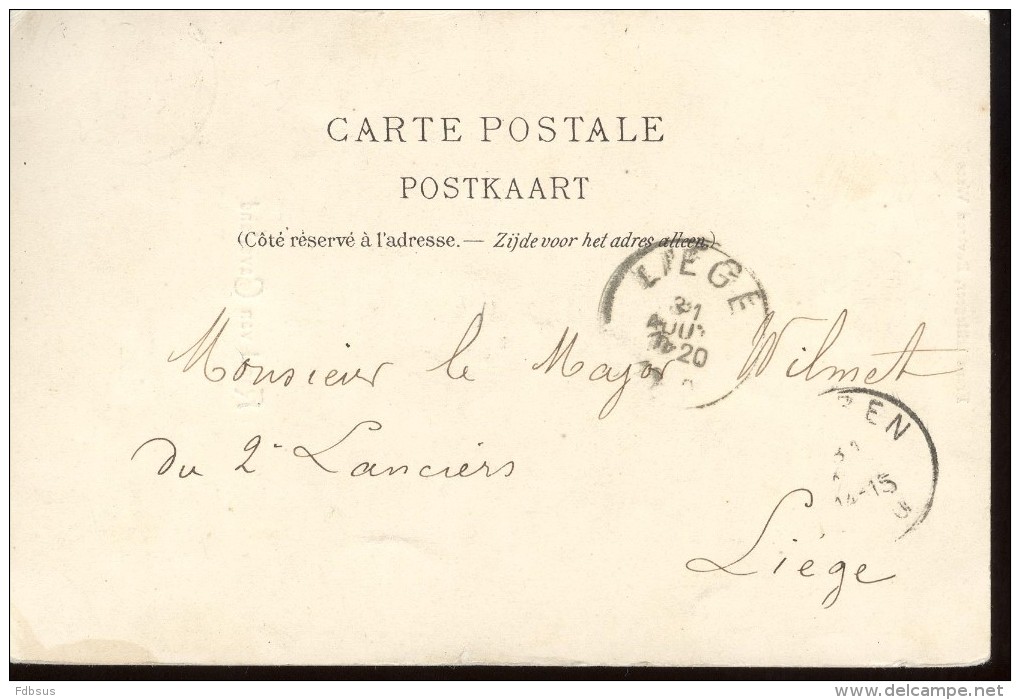 CARTE POSTALE
POSTKAART
(Côté réservé à l'adresse.— Zijde voor het adres alleen.)
LIEGE
31
AOUT
20
Monsieur le Major Wilmet
du 2e Lanciers
Liège
14-15
Fdbsus
www.delcampe.net